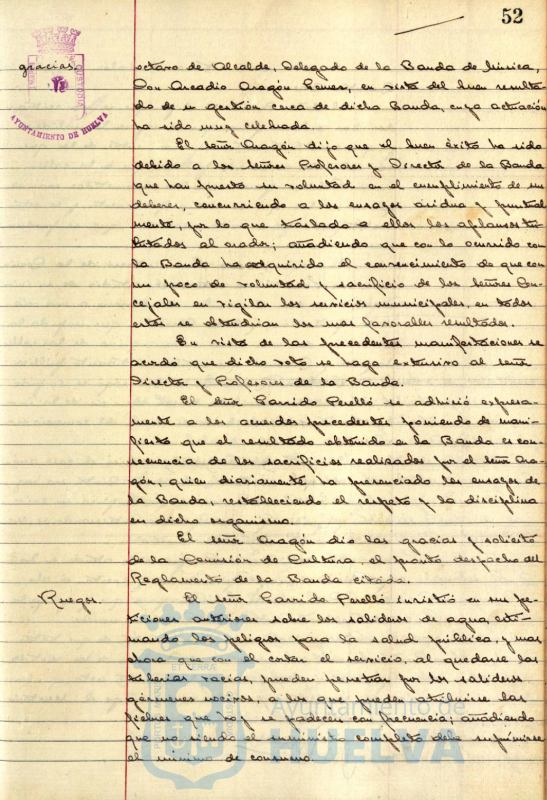 52
gracias.
AYUNTAMIENTO DE HUELVA
octavo de Alcalde, Delegado de la Banda de Música,
Don Arcadio Aragón Gómez, en vista del buen resulta-
do de su gestión cerca de dicha Banda, cuya actuación
ha sido muy celebrada.
El señor Aragón dijo que el buen éxito ha sido
debido a los señores Profesores y Director de la Banda
que han puesto su voluntad en el cumplimiento de sus
deberes, concurriendo a los ensayos asidua y puntual-
mente, por lo que traslado a ellos los aplausos tri-
butados al orador; añadiendo que con lo ocurrido con
la Banda ha adquirido el convencimiento de que con
un poco de voluntad y sacrificio de los señores Con-
cejales en vigilar los servicios municipales, en todos
estos se obtendrían los mas favorables resultados.
En vista de las precedentes manifestaciones se
acordó que dicho voto se haga extensivo al señor
Director y Profesores de la Banda.
El señor Garrido Perelló se adhirió expresa-
mente a los acuerdos precedentes poniendo de mani-
fiesto que el resultado obtenido en la Banda es con-
secuencia de los sacrificios realizados por el señor Ara-
gón, quien diariamente ha presenciado los ensayos de
la Banda, restableciendo el respeto y la disciplina
en dicho organismo.
El señor Aragón dio las gracias y solicitó
de la Comisión de Cultura el pronto despacho del
Reglamento de la Banda citada.
Ruegos.
El señor Garrido Perelló insistió en sus pe-
ticiones anteriores sobre los salideros de agua, esti-
mando los peligros para la salud pública, y mas
ahora que con el cortar el servicio, al quedarse las
tuberías vacías, pueden penetrar por los salideros
gérmenes nocivos, a los que pueden atribuirse las
fiebres que hoy se padecen con frecuencia; añadiendo
que no siendo el suministro completo debe suprimirse
el mínimo de consumo.
Ayuntamiento de
HUELVA